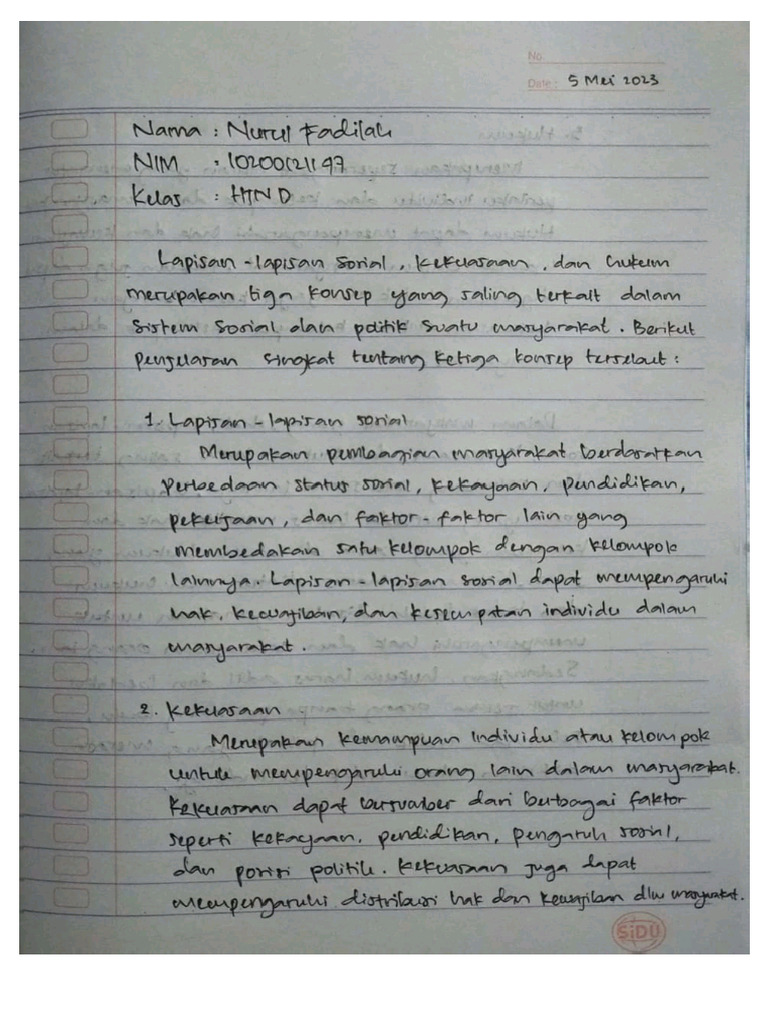 No.
Date : 5 Mei 2023
Nama : Nurul Fadilah
NIM : 10200121147
Kelas : HTN D
Lapisan-lapisan sosial, kekuasaan, dan hukum
merupakan tiga konsep yang saling terkait dalam
sistem sosial dan politik suatu masyarakat. Berikut
penjelasan singkat tentang ketiga konsep tersebut :
1. Lapisan-lapisan sosial
Merupakan pembagian masyarakat berdasarkan
perbedaan status sosial, kekayaan, pendidikan,
pekerjaan, dan faktor-faktor lain yang
membedakan satu kelompok dengan kelompok
lainnya. Lapisan-lapisan sosial dapat mempengaruhi
hak, kewajiban, dan kesempatan individu dalam
masyarakat.
2. Kekuasaan
Merupakan kemampuan individu atau kelompok
untuk mempengaruhi orang lain dalam masyarakat.
Kekuasaan dapat bersumber dari berbagai faktor
seperti kekayaan, pendidikan, pengaruh sosial,
dan posisi politik. Kekuasaan juga dapat
mempengaruhi distribusi hak dan kewajiban dlm masyarakat.
SiDU